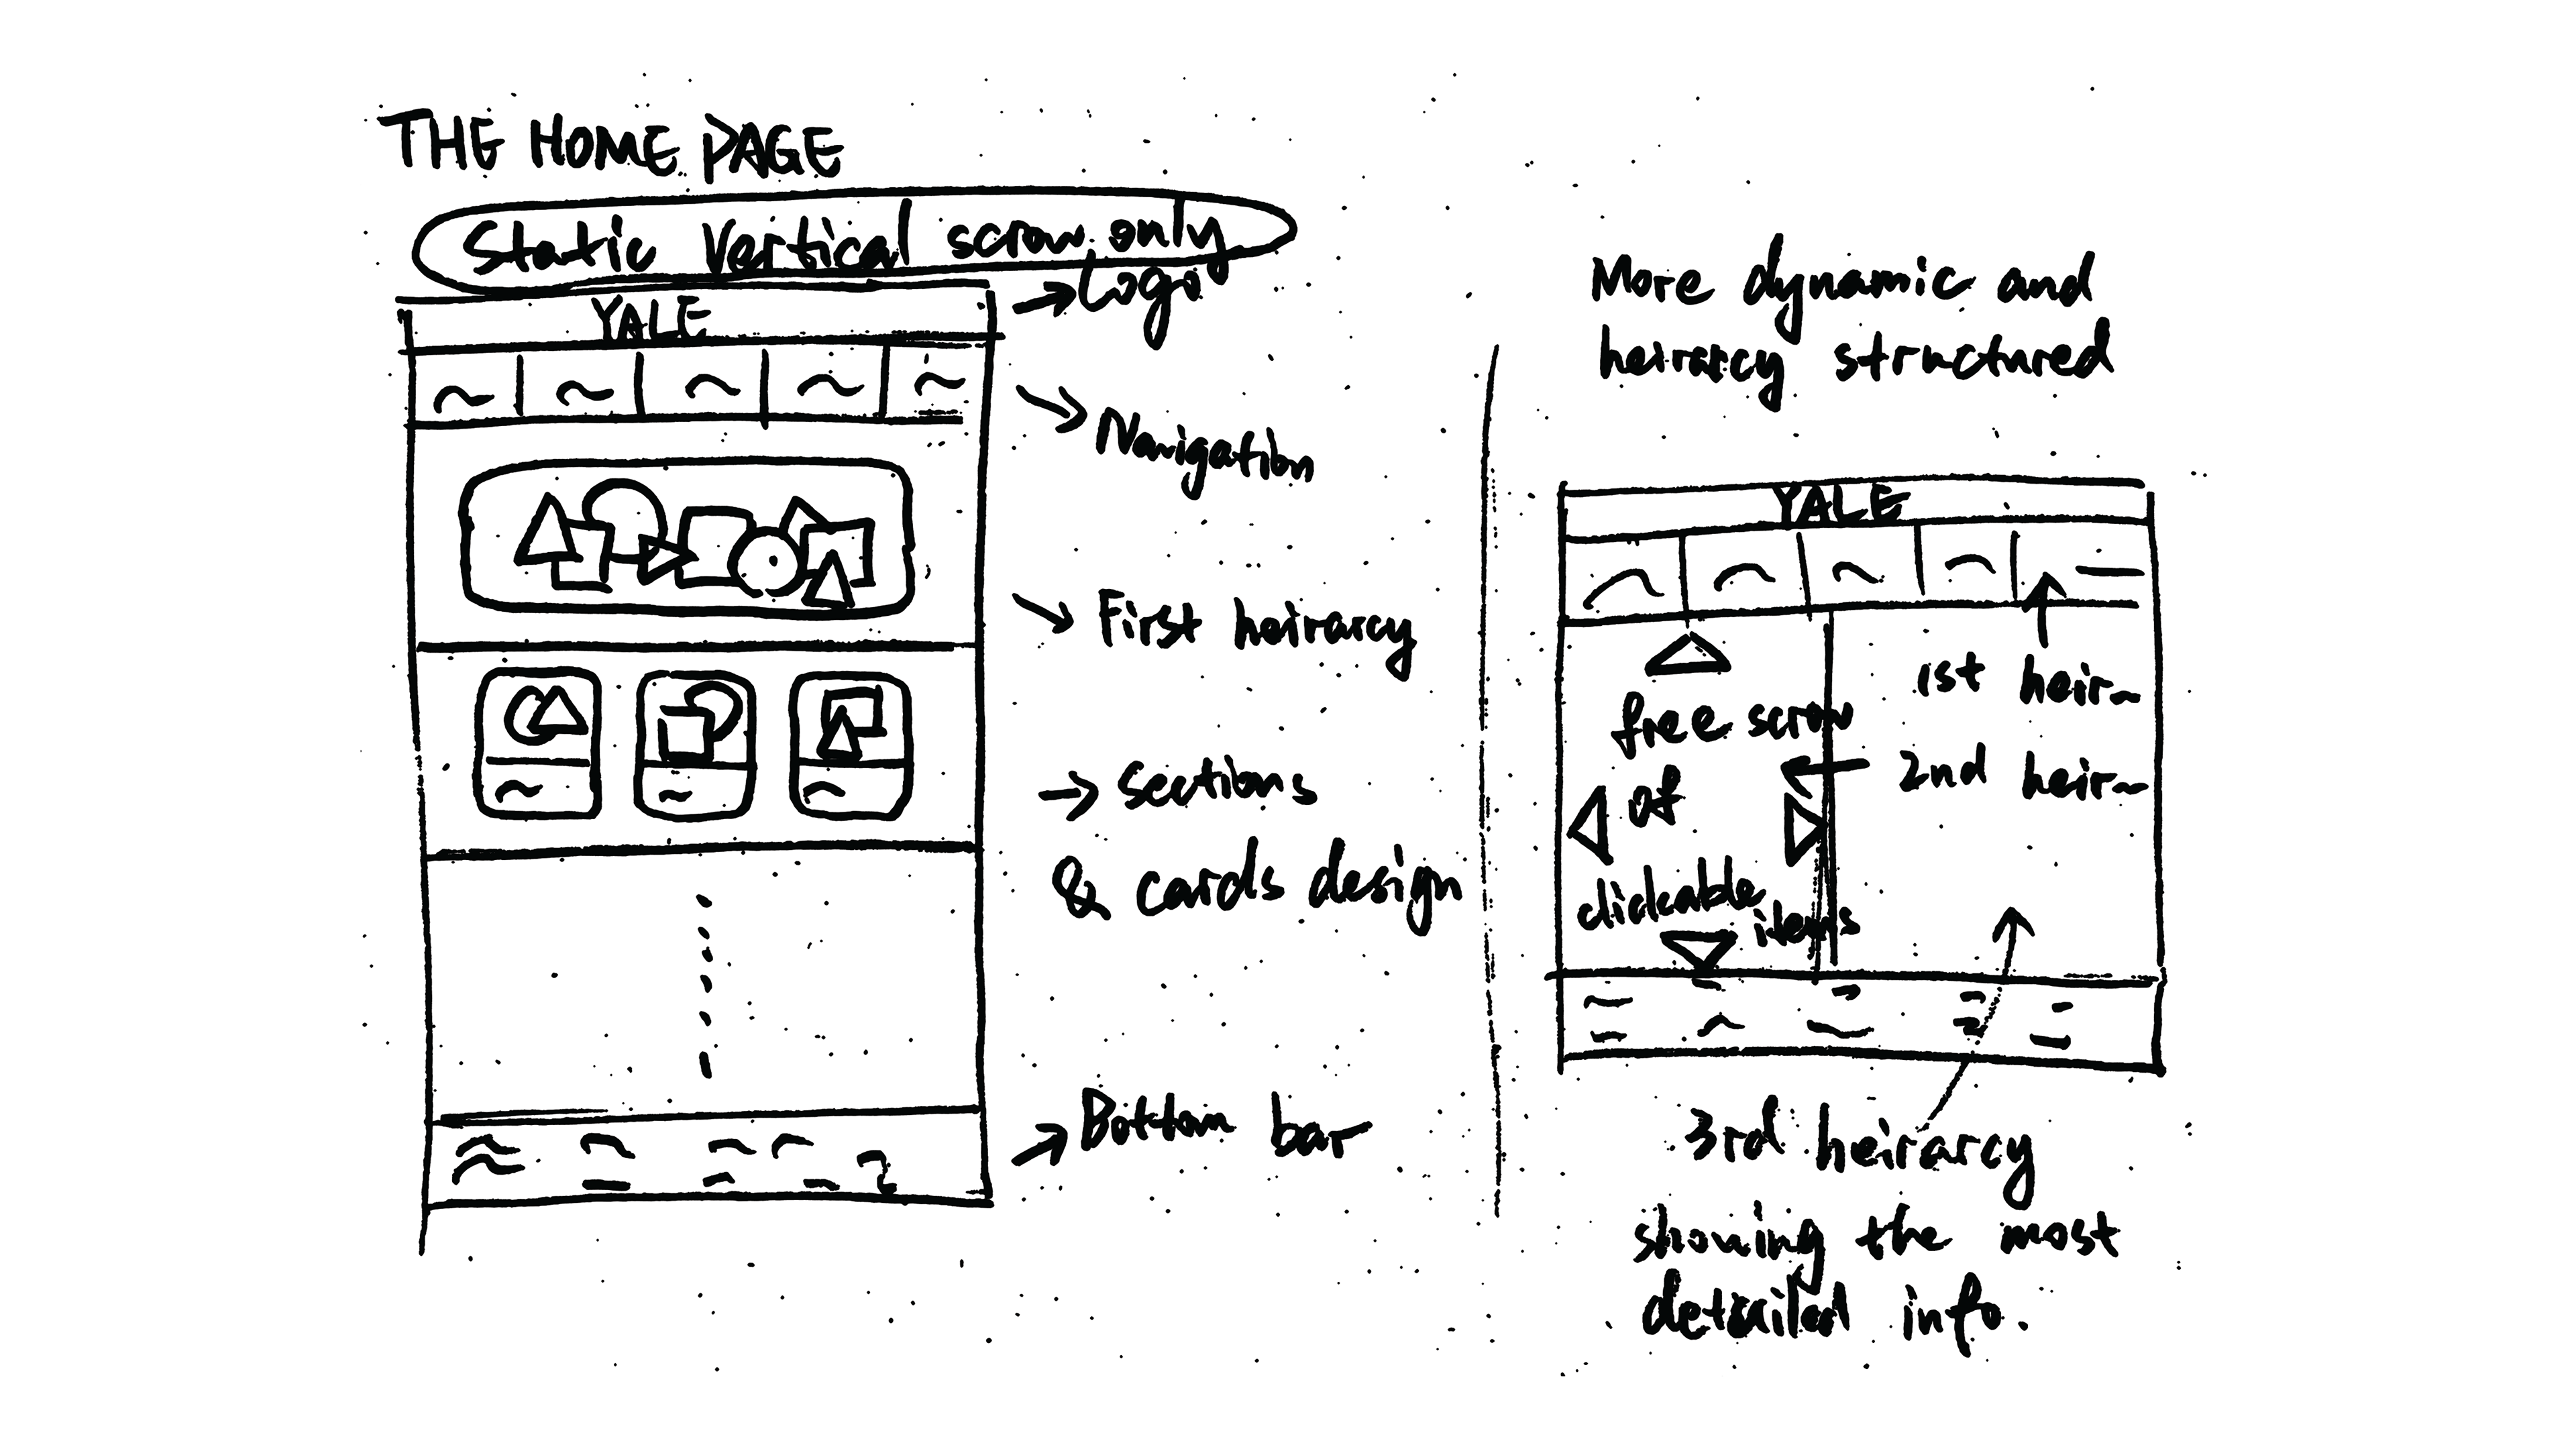 THE HOME PAGE
Static Vertical scrow only
YALE
Logo
Navigation
First heirarcy
Sections
& cards design
Bottom bar
More dynamic and
heirarcy structured
YALE
1st heir~
free scrow
2nd heir~
of
clickable
items
3rd heirarcy
showing the most
detailed info.